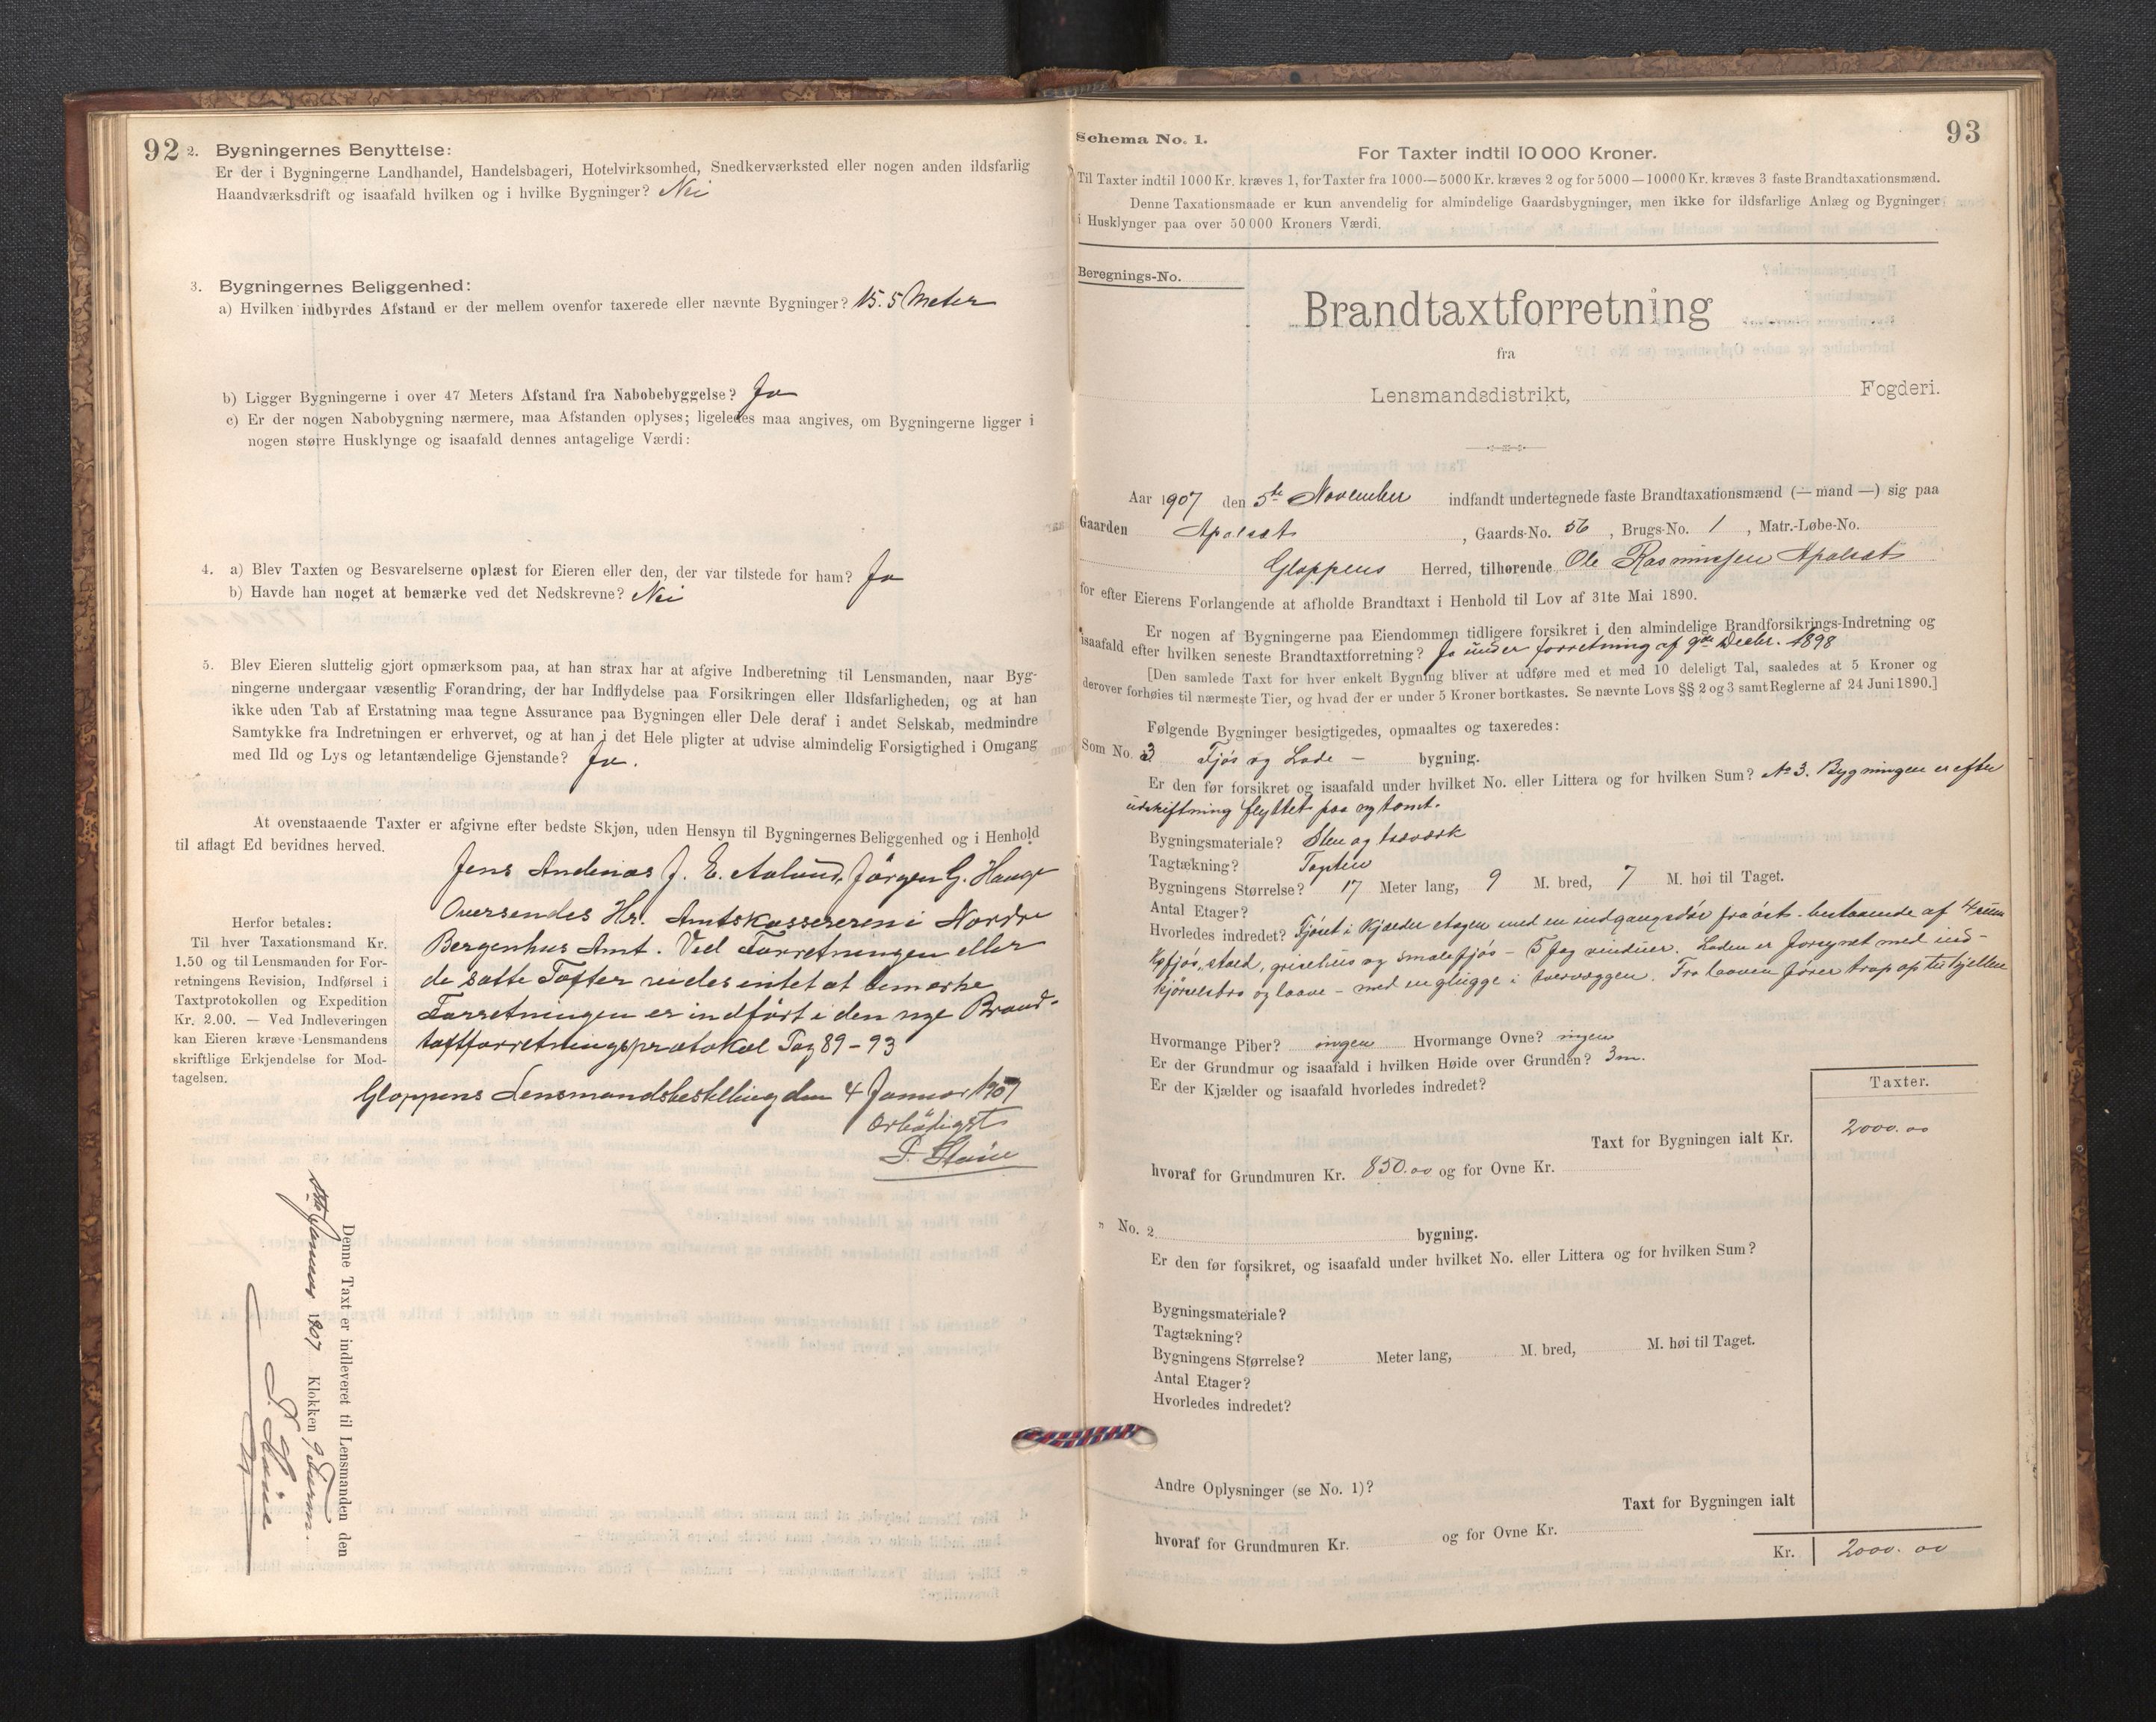 92
2. Bygningernes Benyttelse:
Er der i Bygningerne Landhandel, Handelsbageri, Hotelvirksomhed, Snedkerværksted eller nogen anden ildsfarlig
Haandværksdrift og isaafald hvilken og i hvilke Bygninger? Nei
3. Bygningernes Beliggenhed:
a) Hvilken indbyrdes Afstand er der mellem ovenfor taxerede eller nævnte Bygninger? 15.5 Meter
b) Ligger Bygningerne i over 47 Meters Afstand fra Nabobebyggelse? Ja
c) Er der nogen Nabobygning nærmere, maa Afstanden oplyses; ligeledes maa angives, om Bygningerne ligger i
nogen større Husklynge og isaafald dennes antagelige Værdi:
4. a) Blev Taxten og Besvarelserne oplæst for Eieren eller den, der var tilstede for ham? Ja
b) Havde han noget at bemærke ved det Nedskrevne? Nei
5. Blev Eieren sluttelig gjort opmærksom paa, at han strax har at afgive Indberetning til Lensmanden, naar Byg-
ningerne undergaar væsentlig Forandring, der har Indflydelse paa Forsikringen eller Ildsfarligheden, og at han
ikke uden Tab af Erstatning maa tegne Assurance paa Bygningen eller Dele deraf i andet Selskab, medmindre
Samtykke fra Indretningen er erhvervet, og at han i det Hele pligter at udvise almindelig Forsigtighed i Omgang
med Ild og Lys og letantændelige Gjenstande? Ja.
At ovenstaaende Taxter er afgivne efter bedste Skjøn, uden Hensyn til Bygningernes Beliggenhed og i Henhold
til aflagt Ed bevidnes herved.
Jens Andenæs J. E. Aalund, Jörgen G. Hauge
Oversendes Hr. Amtskassereren i Nordre
Bergenhus Amt. Ved Forretningen eller
de satte Taxter vides intet at bemerke
Forretningen er indført i den nye Brand-
taxtforretningsprotokol Pag 89-93
Gloppens Lensmandsbestilling den 4 Januar 1907
Ærbødigst
Herfor betales:
Til hver Taxationsmand Kr.
1.50 og til Lensmanden for For-
retningens Revision, Indførsel i
Taxtprotokollen og Expedition
Kr. 2.00. — Ved Indleveringen
kan Eieren kræve Lensmandens
skriftlige Erkjendelse for Mod-
tagelsen.
Denne Taxt er indleveret til Lensmanden den
Januar 1907 Klokken 9 Form.
93
Schema No. 1.
For Taxter indtil 10 000 Kroner.
Til Taxter indtil 1000 Kr. kræves 1, for Taxter fra 1000—5000 Kr. kræves 2 og for 5000—10000 Kr. kræves 3 faste Brandtaxationsmænd.
Denne Taxationsmaade er kun anvendelig for almindelige Gaardsbygninger, men ikke for ildsfarlige Anlæg og Bygninger
i Husklynger paa over 50 000 Kroners Værdi.
Beregnings-No.
Brandtaxtforretning
fra
Lensmandsdistrikt, Fogderi.
Aar 1907 den 5te November indfandt undertegnede faste Brandtaxationsmænd (— mand —) sig paa
Gaarden Apalset, Gaards-No. 56, Brugs-No. 1, Matr.-Løbe-No.
Gloppens Herred, tilhørende Ole Rasmussen Apalset
for efter Eierens Forlangende at afholde Brandtaxt i Henhold til Lov af 31te Mai 1890.
Er nogen af Bygningerne paa Eiendommen tidligere forsikret i den almindelige Brandforsikrings-Indretning og
isaafald efter hvilken seneste Brandtaxtforretning? Ja under forretning af 9de Decbr. 1898
[Den samlede Taxt for hver enkelt Bygning bliver at udføre med et med 10 deleligt Tal, saaledes at 5 Kroner og
derover forhøies til nærmeste Tier, og hvad der er under 5 Kroner bortkastes. Se nævnte Lovs §§ 2 og 3 samt Reglerne af 24 Juni 1890.]
Følgende Bygninger besigtigedes, opmaaltes og taxeredes:
Som No. 3 Fjös og Lade - bygning.
Er den før forsikret og isaafald under hvilket No. eller Littera og for hvilken Sum? No 3. Bygningen er efter
udskiftning flyttet paa ny tomt.
Bygningsmateriale? Sten og træværk
Tagtækning?
Bygningens Størrelse? 17 Meter lang, 9 M. bred, 7 M. høi til Taget.
Antal Etager?
Hvorledes indredet? Fjöset i Kjælder etagen med en indgangsdör fra öst - bestaaende af 4 rum
Kofjös, stald, grisehus og smalefjös - 5 fag vinduer. Laden er forsynet med ind-
kjörselsbro og laave - med en glugge i tvervæggen. Fra laaven förer trap op til hjellen
Hvormange Piber? ingen Hvormange Ovne? ingen
Er der Grundmur og isaafald i hvilken Høide over Grunden? 3 m.
Er der Kjælder og isaafald hvorledes indredet?
Taxter.
Taxt for Bygningen ialt Kr. 2000.00
hvoraf for Grundmuren Kr. 850.00 og for Ovne Kr.
" No. 2 bygning.
Er den før forsikret, og isaafald under hvilket No. eller Littera og for hvilken Sum?
Bygningsmateriale?
Tagtækning?
Bygningens Størrelse? Meter lang, M. bred, M. høi til Taget.
Antal Etager?
Hvorledes indredet?
Andre Oplysninger (se No. 1)?
Taxt for Bygningen ialt
hvoraf for Grundmuren Kr. og for Ovne Kr.
Kr. 2000.00